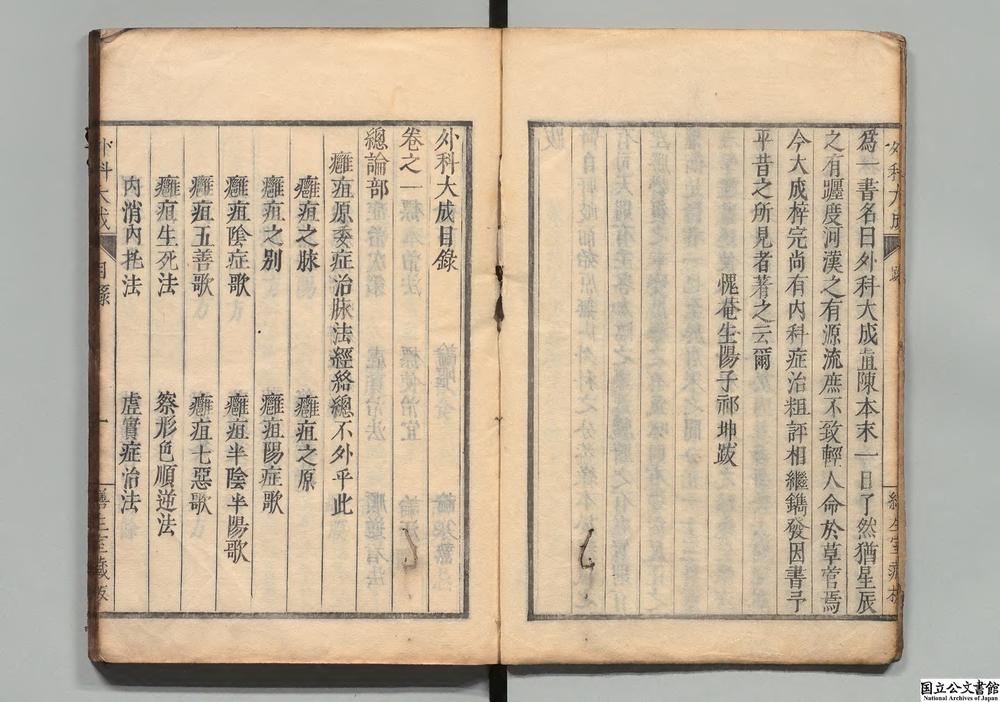 為一書名曰外科大成直陳本末一目了然猶星辰
之有躔度河漢之有源流庶不致輕人命於草菅焉
今大成梓完尚有内科症治粗評相繼鐫發因書予
平昔之所見者著之云爾
愧菴生陽子祁坤跋
外科大成
跋
外科大成目錄
卷之一
總論部
癰疽原委症治脉法經絡總不外乎此
癰疽之脉
癰疽之原
癰疽之別
癰疽陽症歌
癰疽陰症歌
癰疽半陰半陽歌
癰疽五善歌
癰疽七惡歌
癰疽生死法
察形色順逆法
内消内托法
虛實症治法
外科大成
目錄
一
國立公文書館
National Archives of Japan